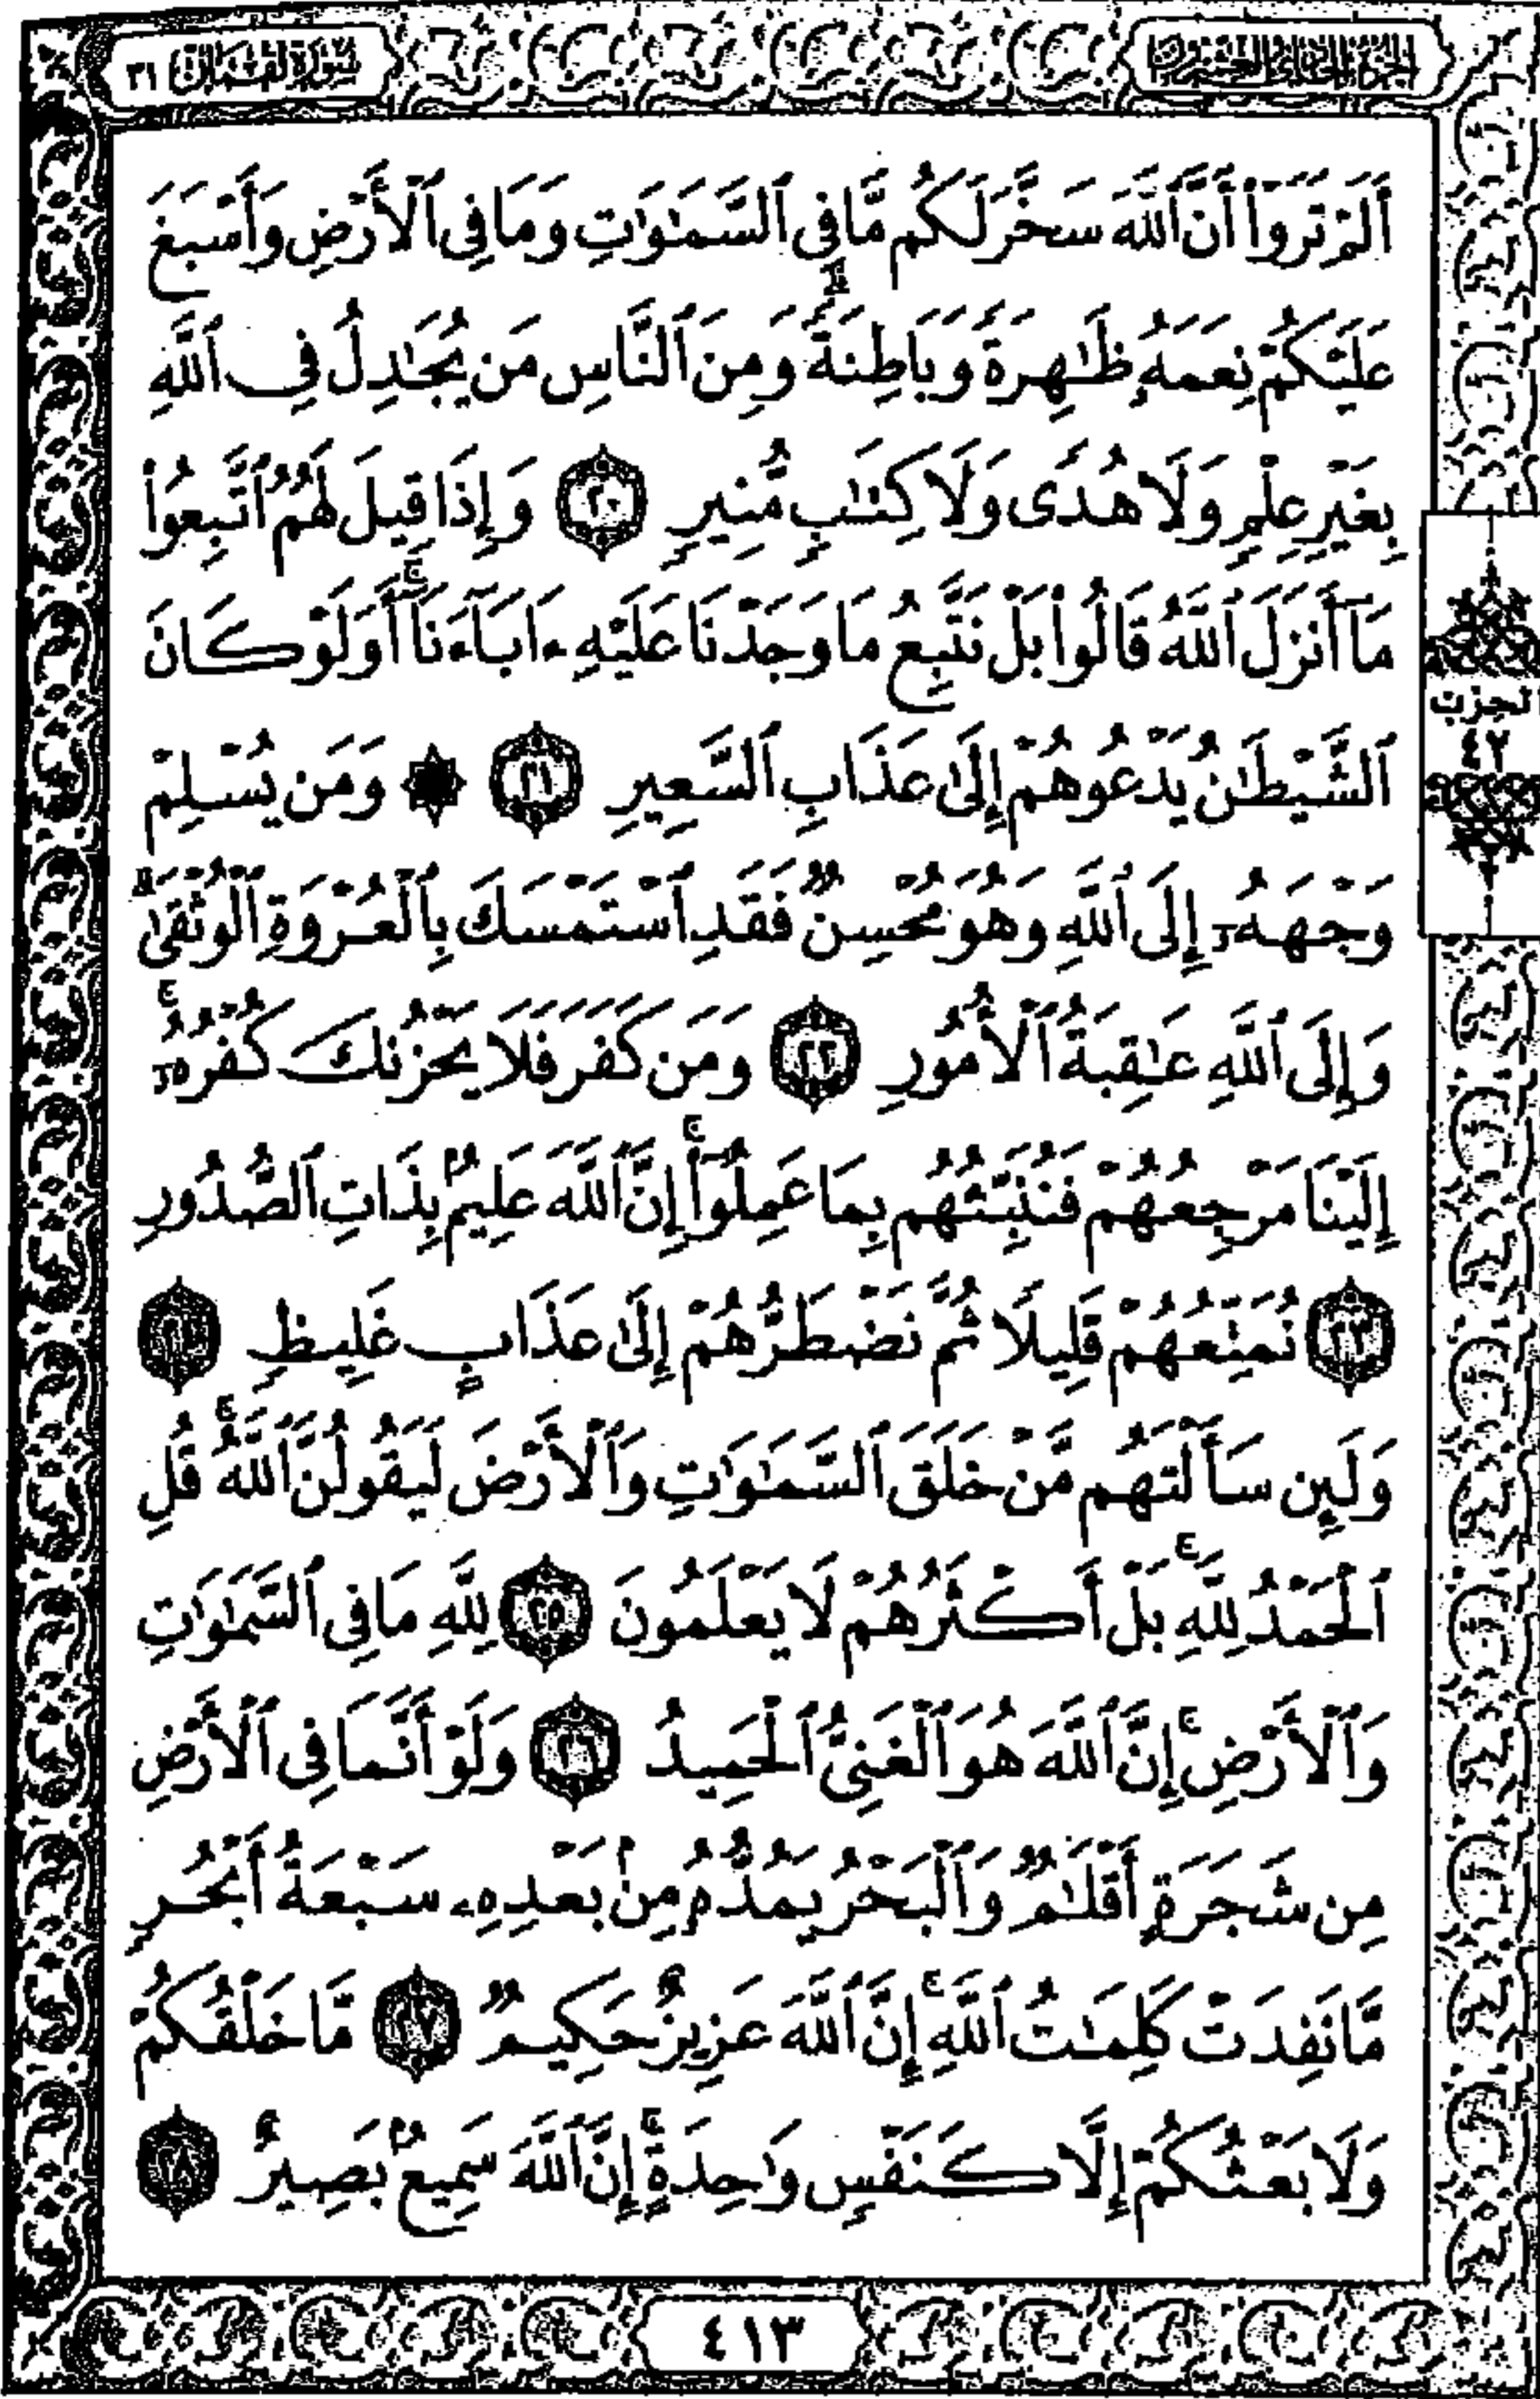 الجزء الحادي والعشرون
سورة لقمان ٣١
أَلَمْ تَرَوْا۟ أَنَّ ٱللَّهَ سَخَّرَ لَكُم مَّا فِى ٱلسَّمَٰوَٰتِ وَمَا فِى ٱلْأَرْضِ وَأَسْبَغَ
عَلَيْكُمْ نِعَمَهُۥ ظَٰهِرَةً وَبَاطِنَةً ۗ وَمِنَ ٱلنَّاسِ مَن يُجَٰدِلُ فِى ٱللَّهِ
بِغَيْرِ عِلْمٍ وَلَا هُدًى وَلَا كِتَٰبٍ مُّنِيرٍ ٢٠ وَإِذَا قِيلَ لَهُمُ ٱتَّبِعُوا۟
مَآ أَنزَلَ ٱللَّهُ قَالُوا۟ بَلْ نَتَّبِعُ مَا وَجَدْنَا عَلَيْهِ ءَابَآءَنَآ ۚ أَوَلَوْ كَانَ
ٱلشَّيْطَٰنُ يَدْعُوهُمْ إِلَىٰ عَذَابِ ٱلسَّعِيرِ ٢١ ۞ وَمَن يُسْلِمْ
وَجْهَهُۥٓ إِلَى ٱللَّهِ وَهُوَ مُحْسِنٌ فَقَدِ ٱسْتَمْسَكَ بِٱلْعُرْوَةِ ٱلْوُثْقَىٰ ۗ
وَإِلَى ٱللَّهِ عَٰقِبَةُ ٱلْأُمُورِ ٢٢ وَمَن كَفَرَ فَلَا يَحْزُنكَ كُفْرُهُۥٓ ۚ
إِلَيْنَا مَرْجِعُهُمْ فَنُنَبِّئُهُم بِمَا عَمِلُوٓا۟ ۚ إِنَّ ٱللَّهَ عَلِيمٌۢ بِذَاتِ ٱلصُّدُورِ
٢٣ نُمَتِّعُهُمْ قَلِيلًا ثُمَّ نَضْطَرُّهُمْ إِلَىٰ عَذَابٍ غَلِيظٍ ٢٤
وَلَئِن سَأَلْتَهُم مَّنْ خَلَقَ ٱلسَّمَٰوَٰتِ وَٱلْأَرْضَ لَيَقُولُنَّ ٱللَّهُ ۚ قُلِ
ٱلْحَمْدُ لِلَّهِ ۚ بَلْ أَكْثَرُهُمْ لَا يَعْلَمُونَ ٢٥ لِلَّهِ مَا فِى ٱلسَّمَٰوَٰتِ
وَٱلْأَرْضِ ۚ إِنَّ ٱللَّهَ هُوَ ٱلْغَنِىُّ ٱلْحَمِيدُ ٢٦ وَلَوْ أَنَّمَا فِى ٱلْأَرْضِ
مِن شَجَرَةٍ أَقْلَٰمٌ وَٱلْبَحْرُ يَمُدُّهُۥ مِنۢ بَعْدِهِۦ سَبْعَةُ أَبْحُرٍ
مَّا نَفِدَتْ كَلِمَٰتُ ٱللَّهِ ۗ إِنَّ ٱللَّهَ عَزِيزٌ حَكِيمٌ ٢٧ مَّا خَلْقُكُمْ
وَلَا بَعْثُكُمْ إِلَّا كَنَفْسٍ وَٰحِدَةٍ ۗ إِنَّ ٱللَّهَ سَمِيعٌۢ بَصِيرٌ ٢٨
الحزب
٤٢
٤١٣